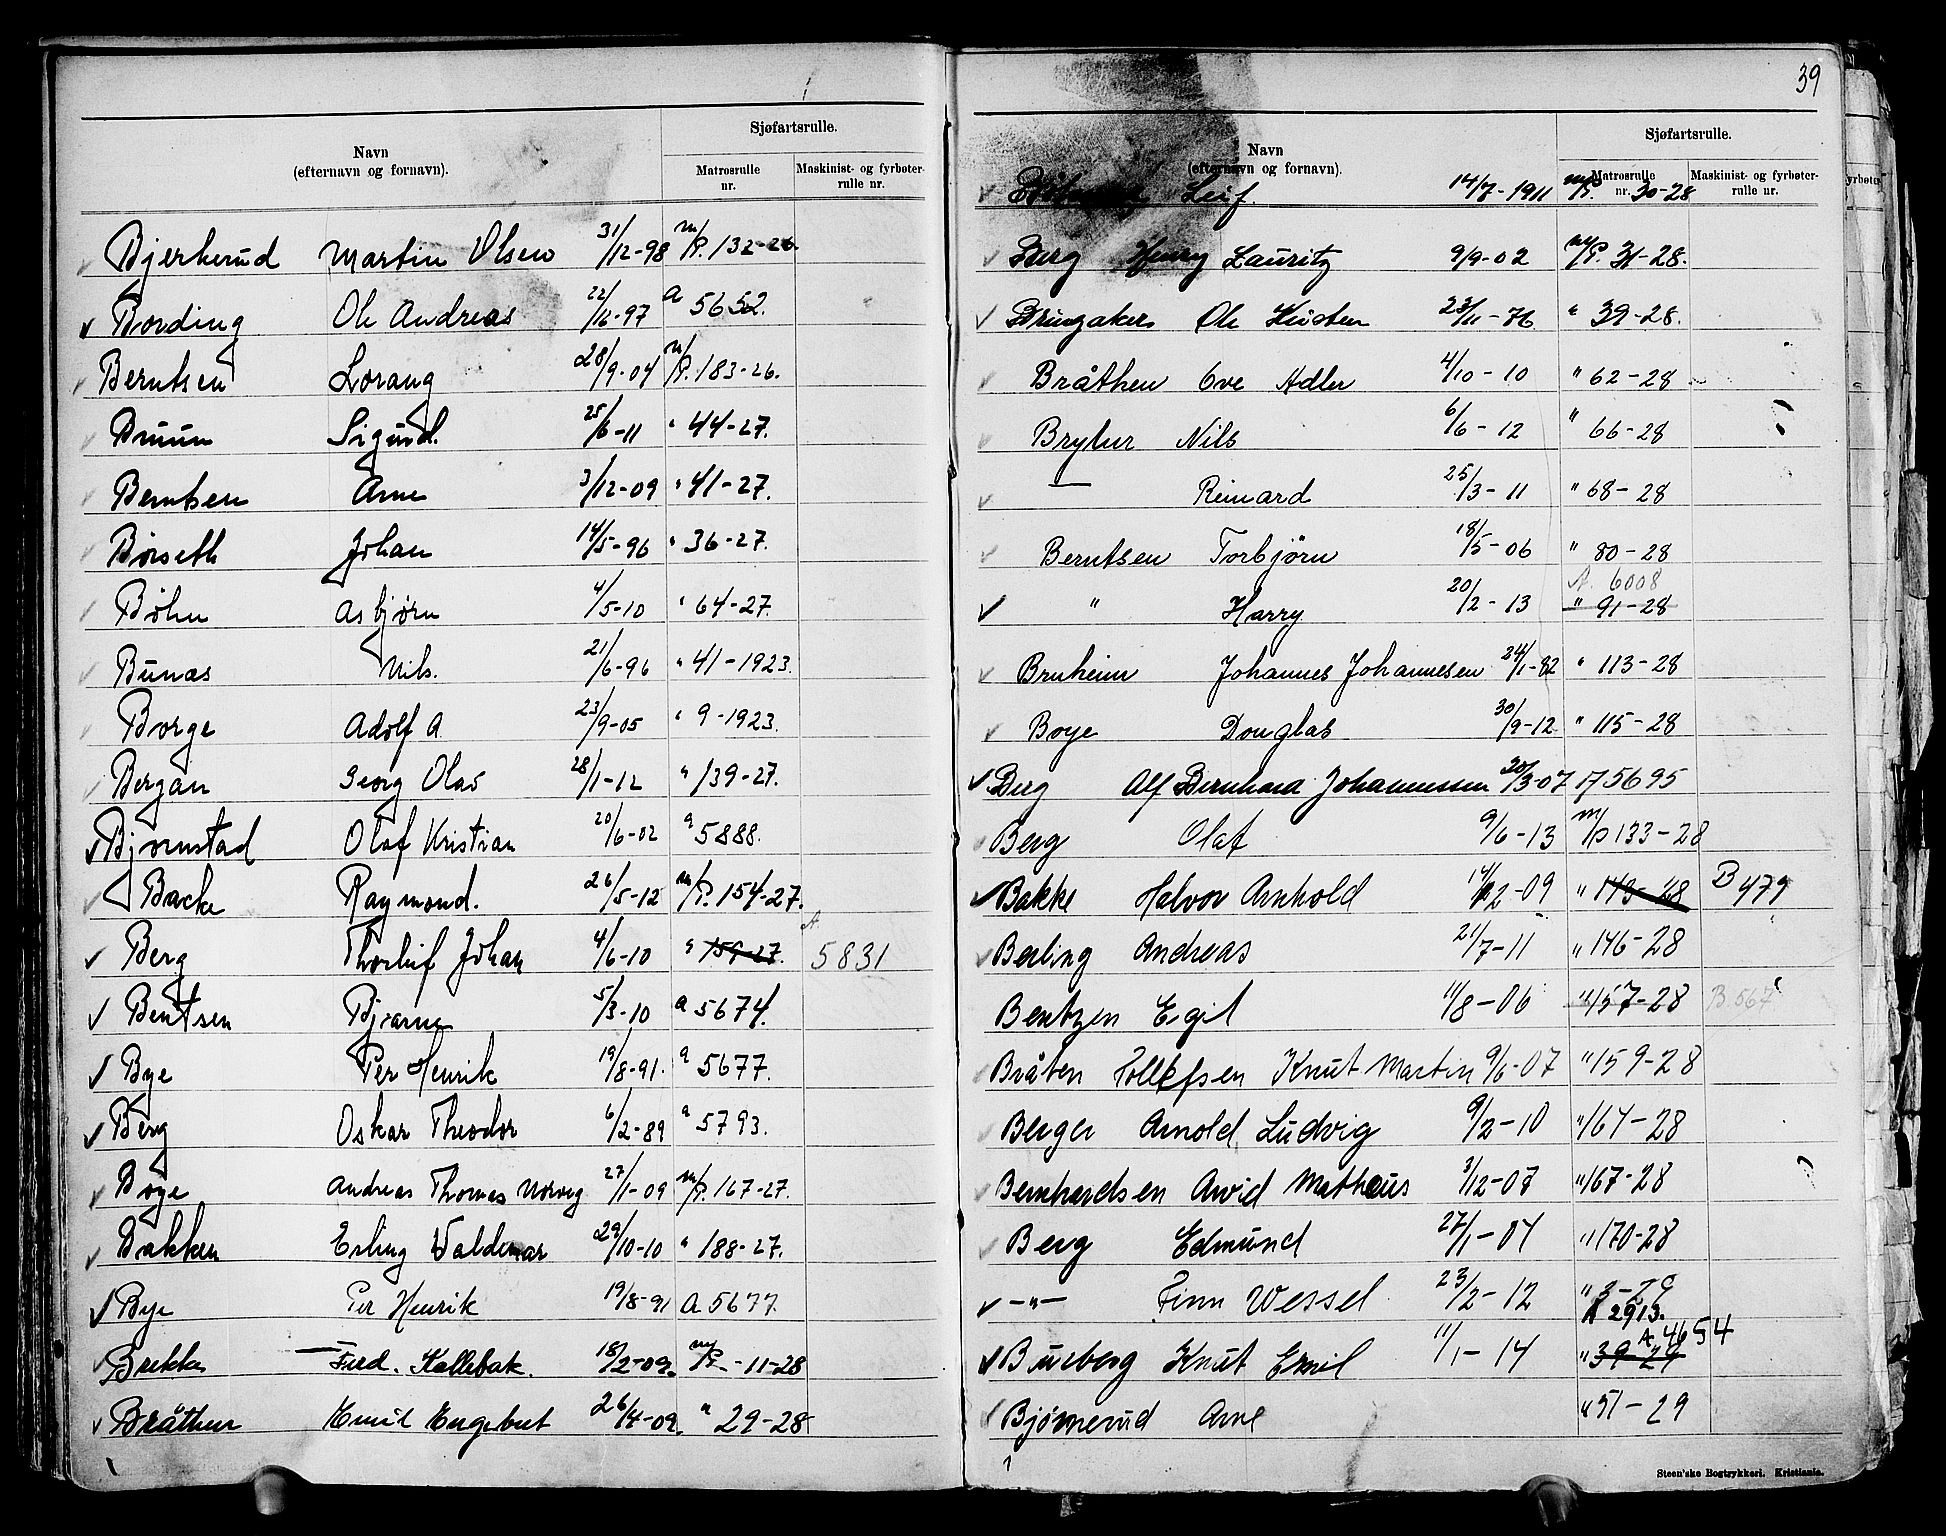 Sjøfartsrulle.
Navn
(efternavn og fornavn).
Matrosrulle nr.
Maskinist- og fyrbøter-rulle nr.
Bjerkerud Martin Olsen 31/12-98 m/P. 132-26.
Bording Ole Andreas 22/12-97 A 5652.
Berntsen Lorang 28/9-04 m/P. 183-26.
Bruun Sigurd. 25/6-11 " 44-27.
Berntsen Arne 3/12-09 " 41-27.
Børseth Johan 14/5-96 " 36-27.
Bøhn Asbjørn 4/5-10 " 64-27.
Bunæs Nils. 21/6-96 " 41-1923.
Borge Adolf A 23/9-05 " 9-1923.
Bergan Georg Olav 28/1-12 " 139-27.
Bjørnstad Olaf Kristian 20/6-02 a 5888.
Backe Raymond. 26/5-12 m/P. 154-27.
Berg Thorleif Johan 4/6-10 " 159-27. A 5831
Bentsen Bjarne 5/3-10 a 5674.
Bye Per Henrik 19/8-91. a 5677.
Berg Oskar Theodor 6/2-89 a 5793.
Boye Andreas Thomas Norvig 27/1-09 m/P. 167-27.
Bakken Erling Valdemar 29/10-10 " 188-27.
Bye Per Henrik 19/8-91 A 5677.
Brekke Ferd. Kallebak. 18/2-09. m/P - 11-28
Bråthen Emil Engebret 26/4-09. " 29-28
39
Sjøfartsrulle.
Navn
(efternavn og fornavn).
Matrosrulle nr.
Maskinist- og fyrbøter-rulle nr.
Leif. 14/7-1911 m/P. 30-28
Berg Henry Lauritz 9/9-02 m/P. 31-28.
Bringaker Ole Kristen 23/11-76 " 39-28.
Bråthen Ove Adler 4/10-10 " 62-28
Nils 6/6-12 " 66-28
— Reinard 25/3-11 " 68-28
Berntsen Torbjørn 18/5-06 " 80-28
A. 6008
" Harry 20/2-13 " 91-28
Bruheim Johannes Johannesen 24/1-82 " 113-28
Boye Douglas 30/9-12. " 115-28
Berg Alf Bernhard Johannessen 20/3-07 5695
Berg Olaf 9/6-13 m/P 133-28
Bakke Halvor Arnhold 14/12-09 " 143-28 B 479
Berling Andreas 21/7-11 " 146-28
Bentzen Egil 11/8-06 " 157-28 B. 567
Bråten Tollefsen Knut Martin 9/6-07 " 159-28
Berger Arnold Ludvig 9/2-10 " 164-28
Bernhardsen Arvid Mathæus 3/12-07 " 167-28
Berg Edmund 27/1-04 " 170-28
—"— Finn Wessel 23/2-12 " 3-29
A 2913.
A. 4654
Burberg Knut Emil 11/1-14 " 39-29
Bjørnerud Arne " 51-29
Steen'ske Bogtrykkeri. Kristiania.